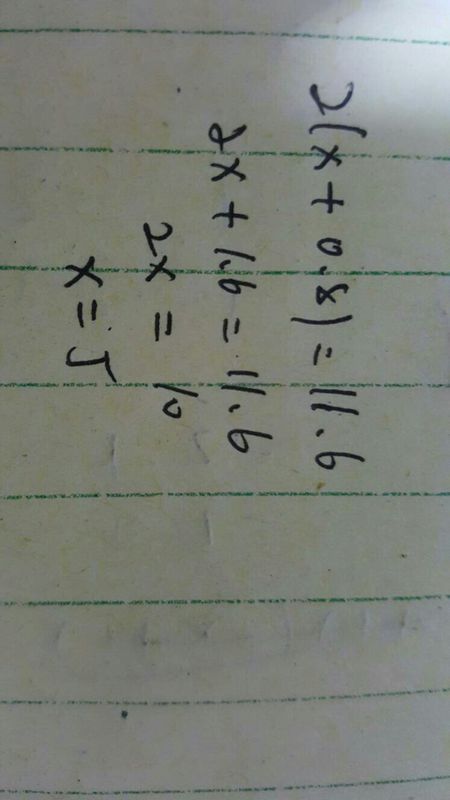 2(x+0.8)=11.6
2x+1.6=11.6
2x=10
x=5